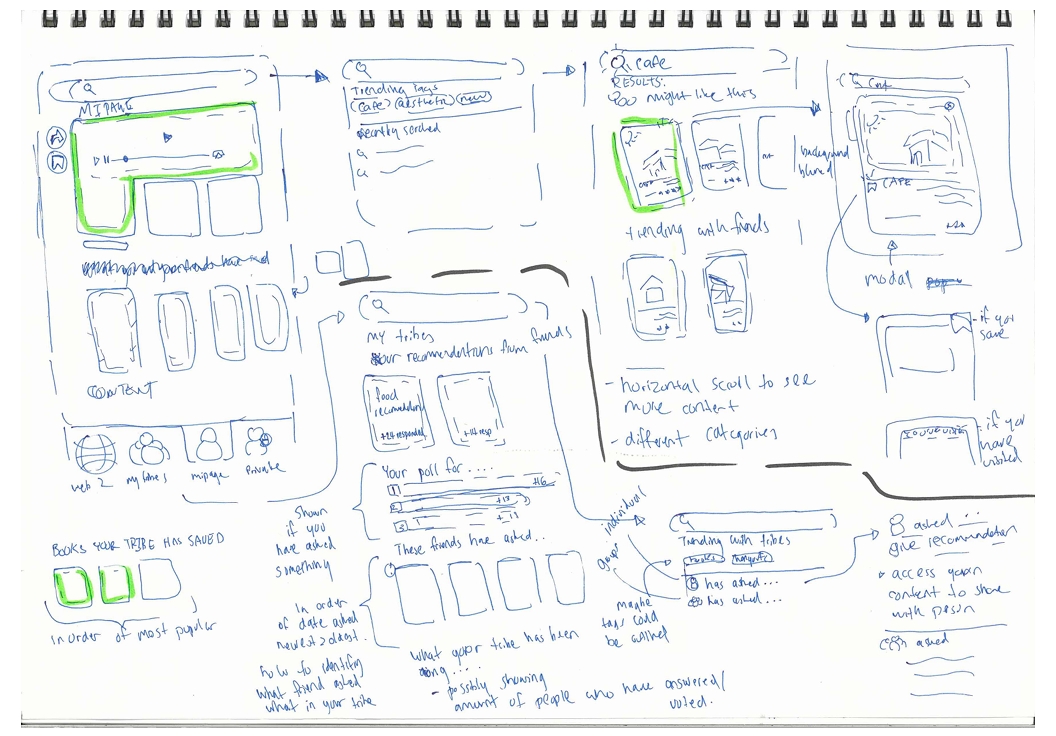 MIPAGE
CONTENT
web 2
my tribes
mipage
Private
BOOKS YOUR TRIBE HAS SAVED
In order of most popular
Trending tags
cafe
aesthetic
new
Recently serched
cafe
RESULTS:
You might like this
background
blured
trending with friends
- horizontal scroll to see
more content
- different categories
CAFE
modal
- if you
save
- if you
have
visited
my tribes
Your recomendations from friends
food
recomendation
+24 responded
+14 resp
Your poll for ....
1
+16
2
+13
3
These friends have asked...
Shown
if you
have asked
something
In order
of date asked
newest > oldest.
how to identify
what friend asked
what in your tribe
What your tribe has been
doing ....
- possibly showing
amount of people who have answered/
voted.
individual
group
maybe
tags could
be added
Trending with tribes
has asked...
has asked...
asked ...
give recomendation
access your
content to share
with person
asked